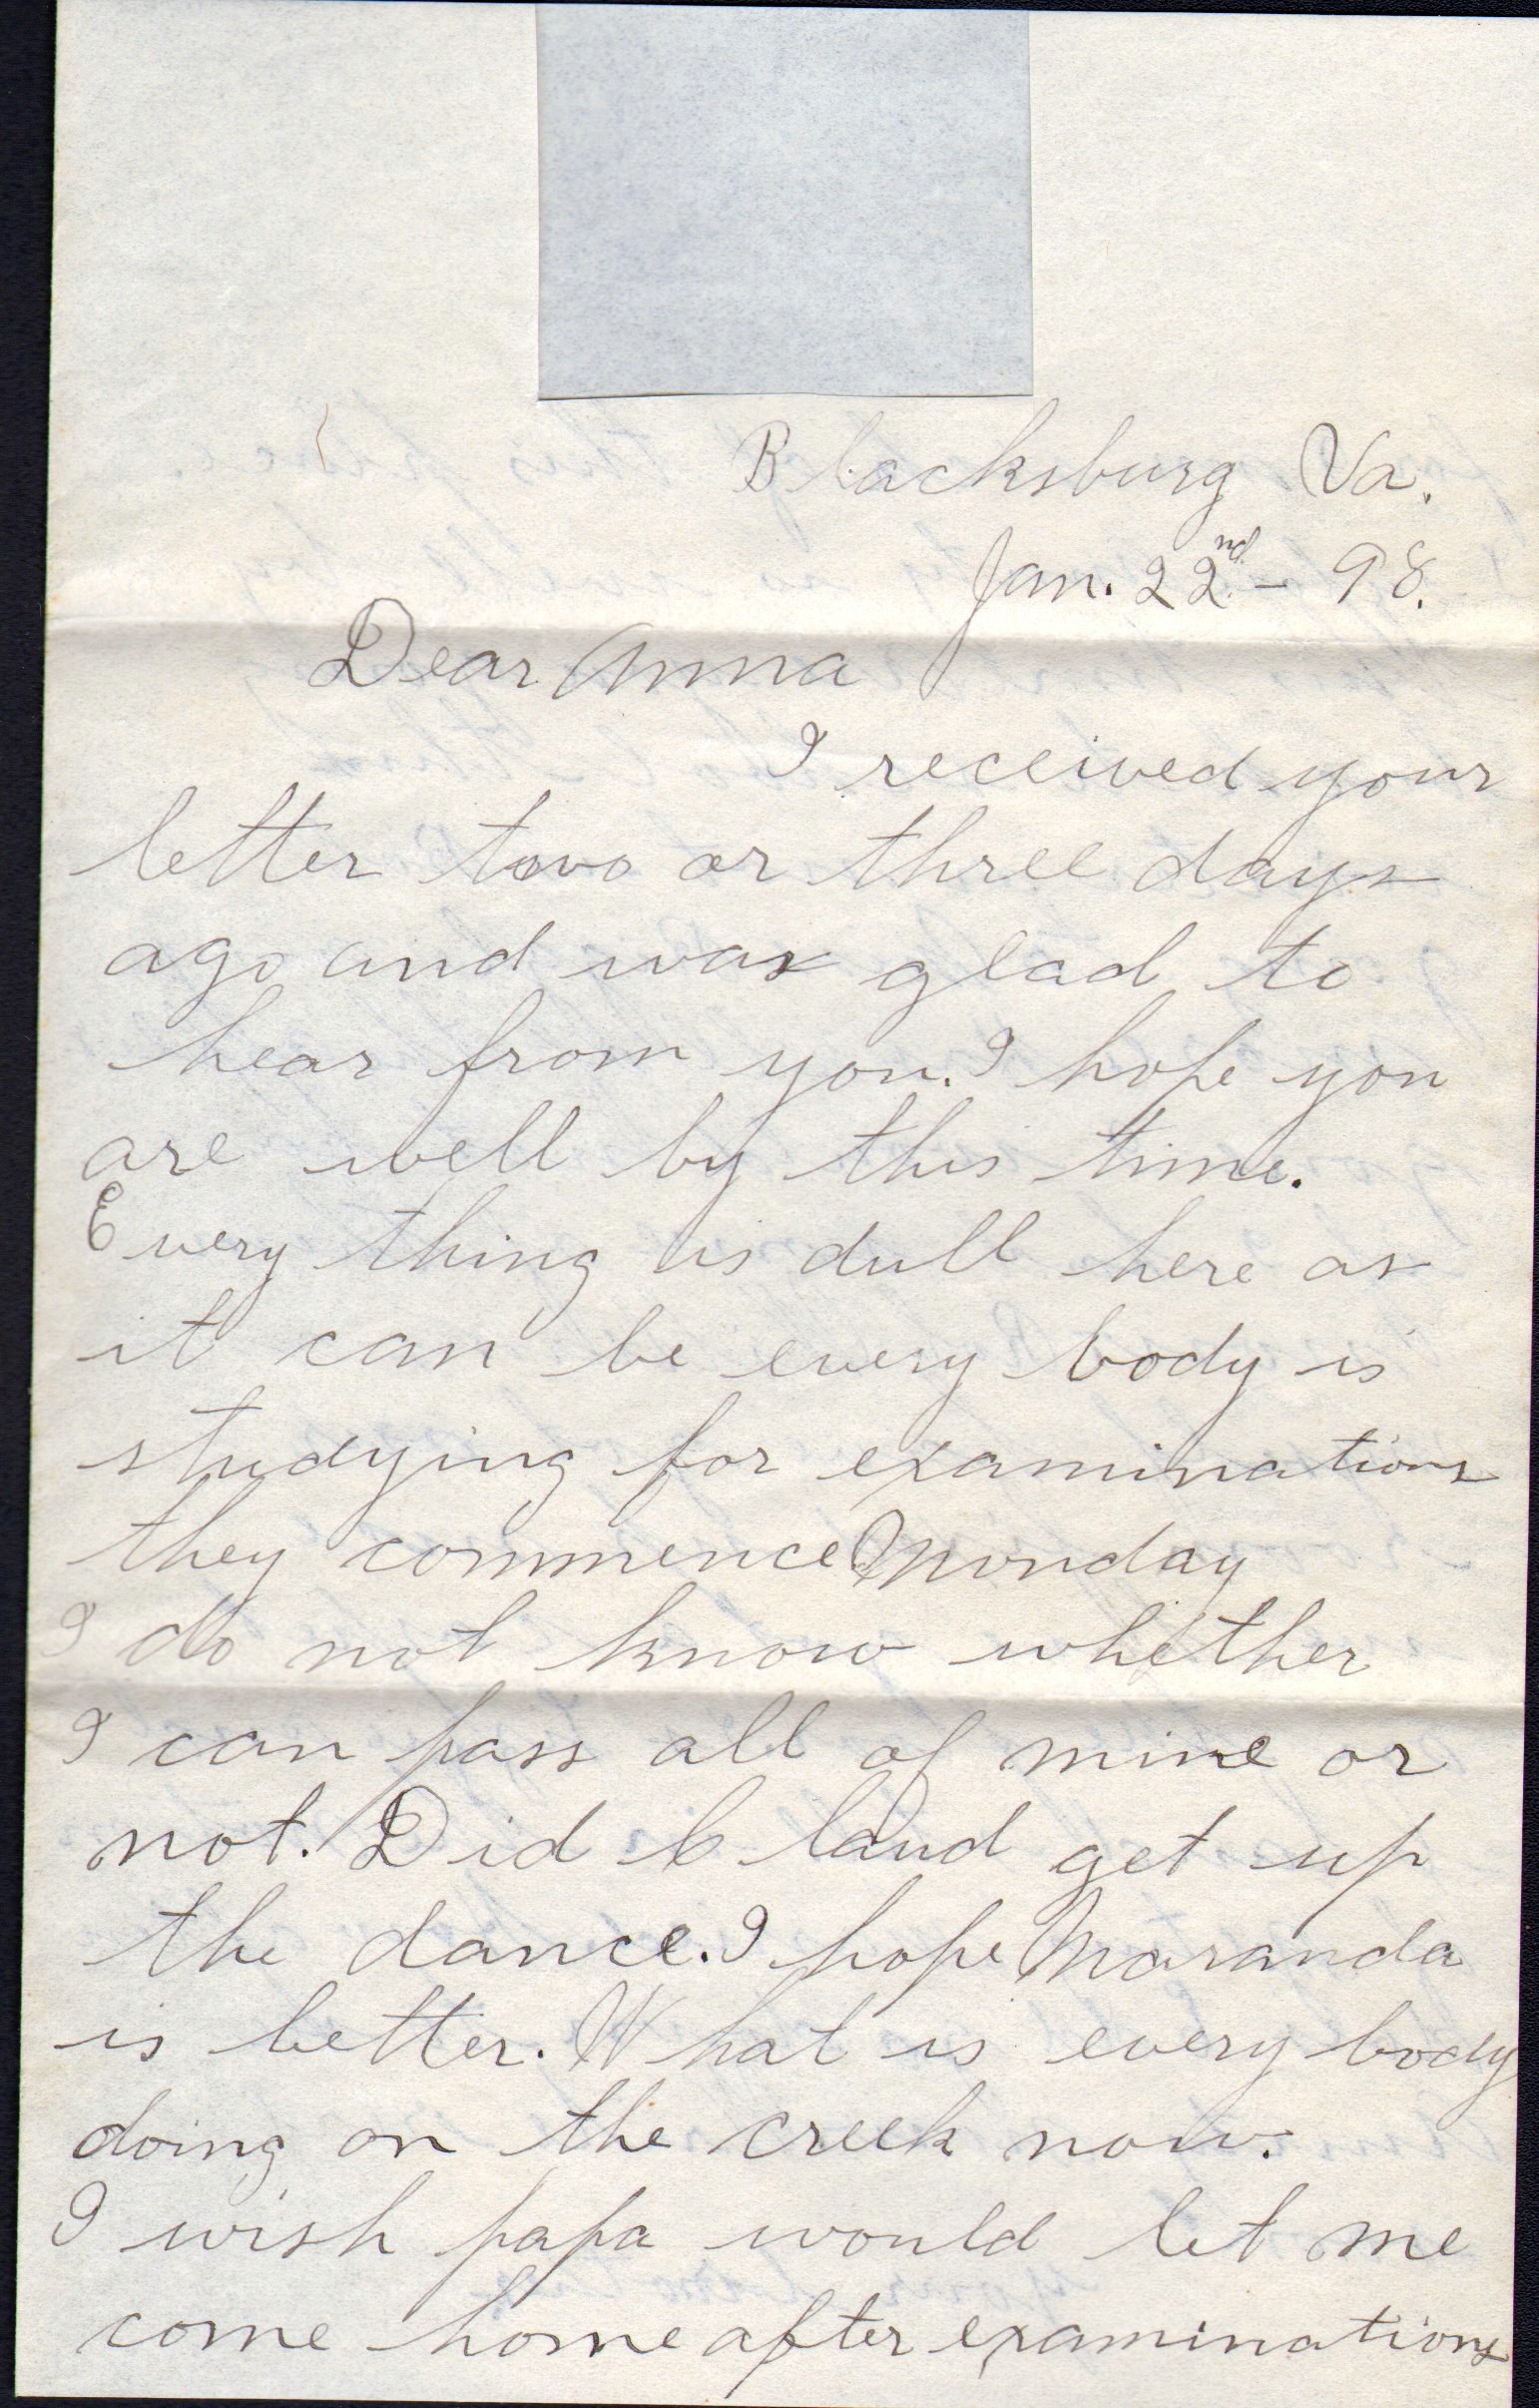 Blacksburg Va.
Jan. 22nd. - 98.
Dear Anna
I received your
letter two or three days
ago and was glad to
hear from you. I hope you
are well by this time.
Every thing is dull here as
it can be every body is
studying for examinations
they commence Monday
I do not know whether
I can pass all of mine or
not. Did Bland get up
the dance. I hope Maranda
is better. What is every body
doing on the creek now.
I wish papa would let me
come home after examinations